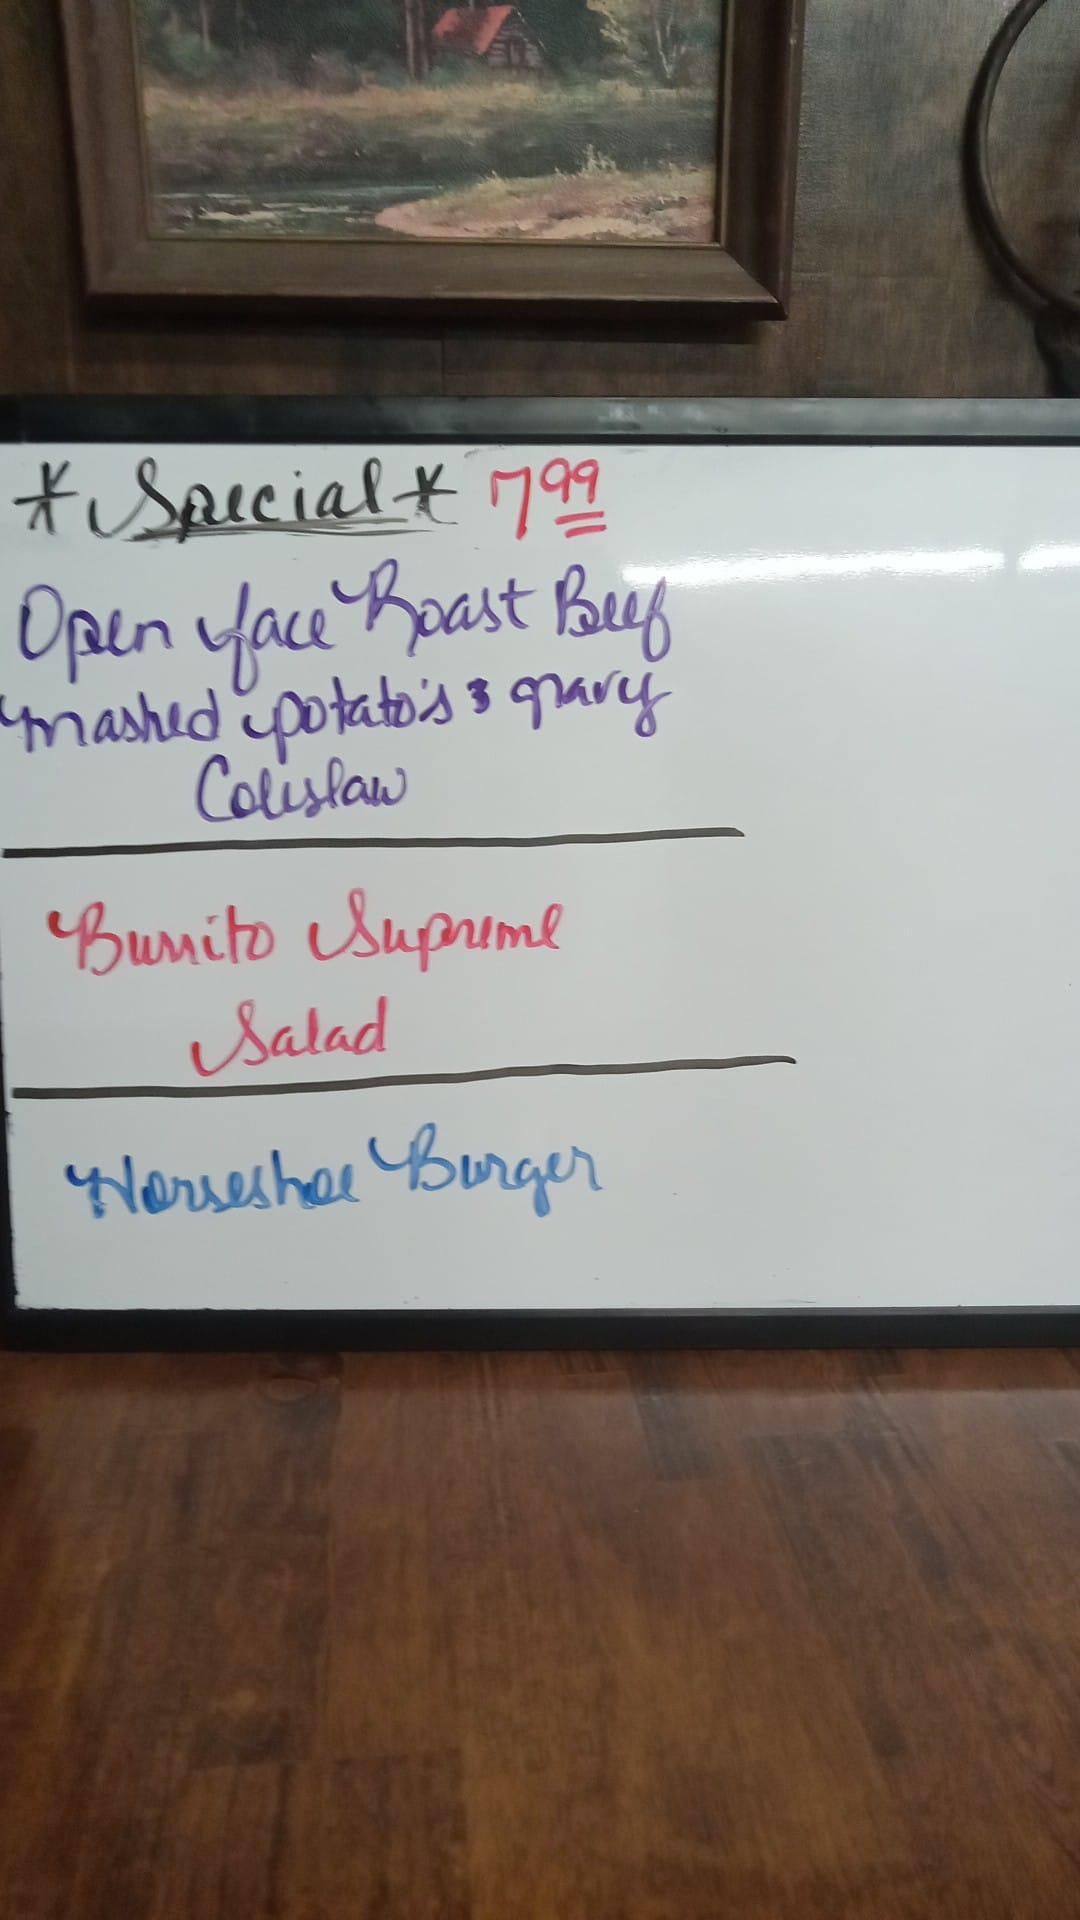 *Special* 7.99
Open face Roast Beef
mashed potato's & gravy
Coleslaw
Burrito Supreme
Salad
Horseshoe Burger